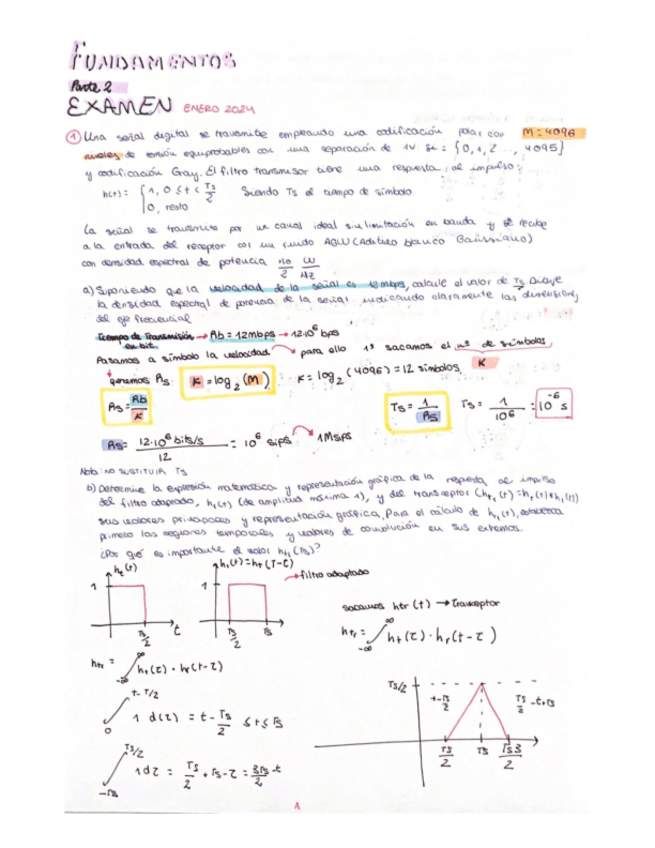 FUNDAMENTOS
Parte 2
EXAMEN ENERO 2024
1 Una señal digital se transmite empleando una codificación polar con M=4096
niveles de tensión equiprobables con una separación de 1V Si = {0,1,2 ..., 4095}
y codificación Gray. El filtro transmisor tiene una respuesta al impulso:
h(t) = { 1, 0 ≤ t < Ts/2 Siendo Ts el tiempo de símbolo.
0, resto
La señal se transmite por un canal ideal sin limitación en banda y se recibe
a la entrada del receptor con un ruido AGW (Aditivo blanco Gaussiano)
con densidad espectral de potencia no/2 W/Hz
a) Suponiendo que la velocidad de la señal es 12mbps, calcule el valor de Ts. Dibuje
la densidad espectral de potencia de la señal indicando claramente las dimensiones
del eje frecuencial
Tiempo de Transmisión → Rb = 12mbps → 12·10⁶ bps
en bit
Pasamos a símbolo la velocidad para ello 1º sacamos el nº de símbolos
K
queremos Rs K = log₂(M) K = log₂(4096) = 12 símbolos
Rs = Rb/K Ts = 1/Rs Ts = 1/10⁶ = 10⁻⁶ s
Rs = 12·10⁶ bits/s / 12 = 10⁶ sips 1Msps
Nota: NO SUSTITUIR Ts
b) Determine la expresión matemática y representación gráfica de la respuesta al impulso
del filtro adaptado, hr(t) (de amplitud máxima 1), y del transceptor (htr(t) = ht(t)*hr(t))
sus valores principales y representación gráfica. Para el cálculo de htr(t), establezca
primero las regiones temporales y valores de convolución en sus extremos.
¿Por qué es importante el valor htr(Ts)?
ht(t) hr(t) = ht(T-t)
→ filtro adaptado
1 1
Ts/2 t Ts/2 Ts
sacamos htr(t) → Transceptor
htr = ∫ ∞ -∞ ht(τ) · hr(t-τ)
htr = ∫ ∞ -∞ ht(τ) · hr(t-τ)
∫ t-T/2 0 1 d(τ) = t - Ts/2 ≤ t ≤ Ts
∫ Ts/2 -Ts 1dτ = Ts/2 + Ts - τ = 3Ts/2 - t
Ts/2 t-Ts/2 Ts/2 -t+Ts
Ts/2 Ts Ts3/2
1